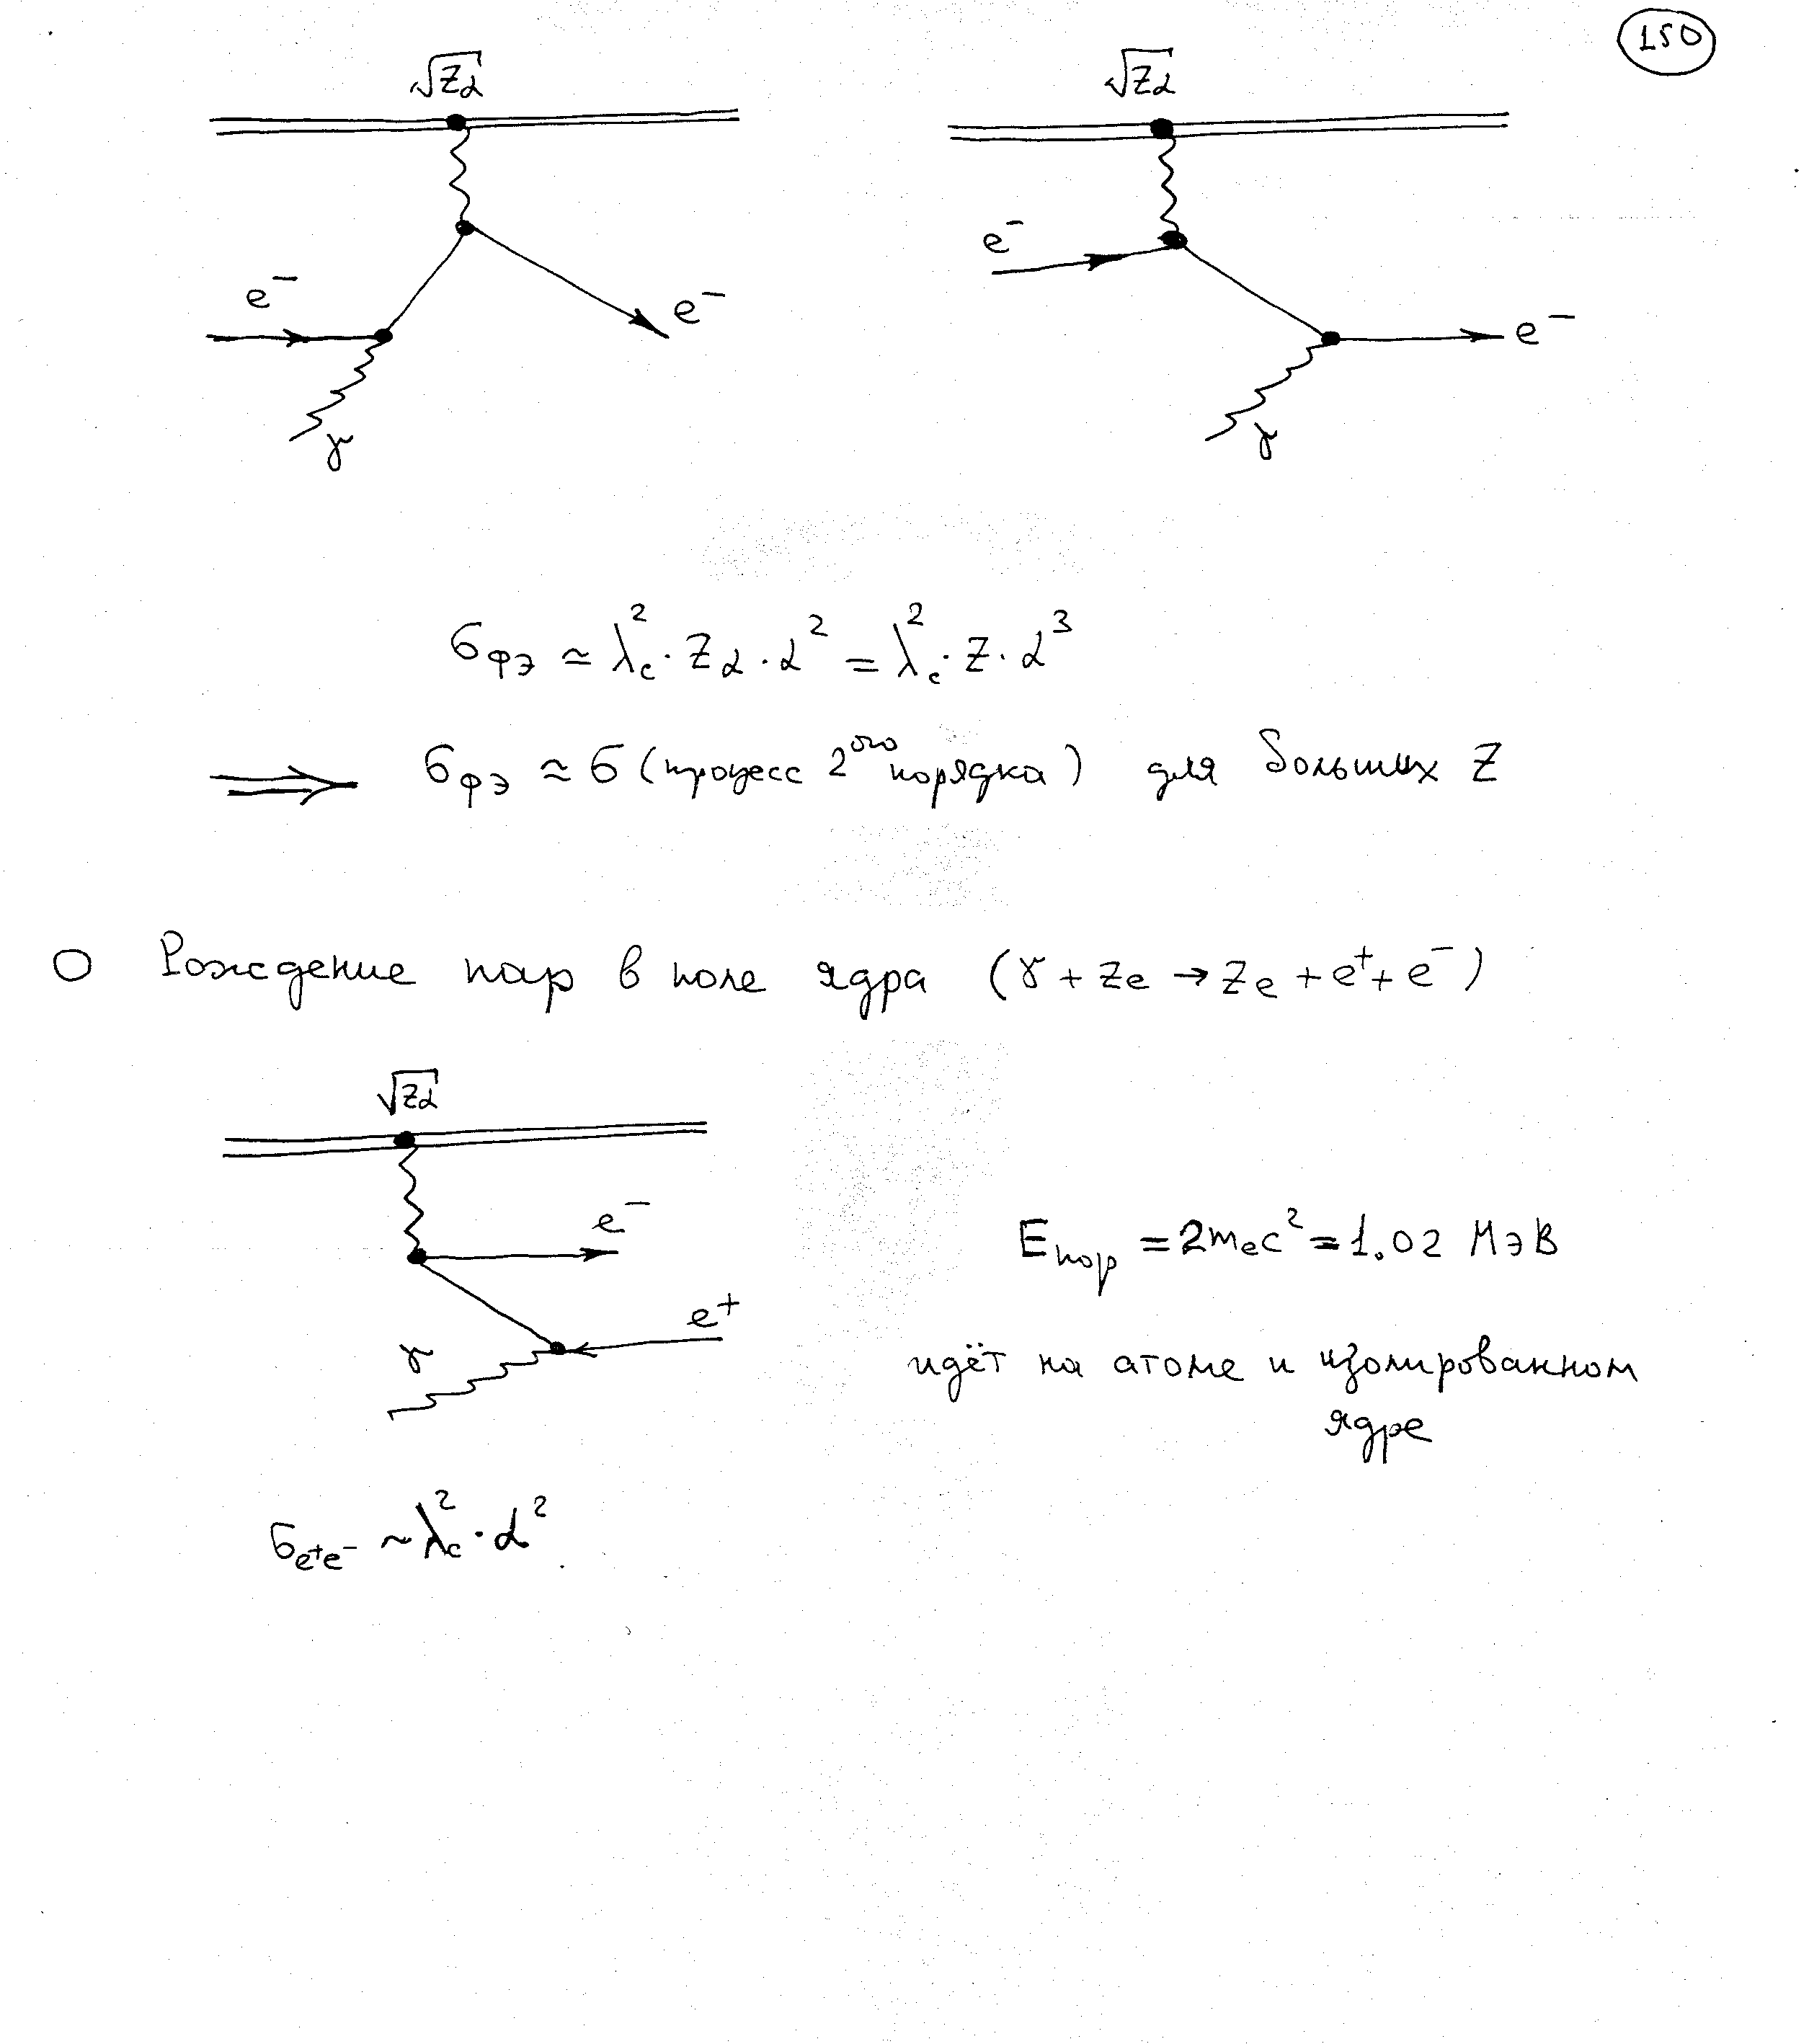 150
√Zα √Zα
e⁻ e⁻ e⁻ e⁻
γ γ
σ_фэ ≃ λ_c² · Zα · α² = λ_c² · Z · α³
⟹ σ_фэ ≈ σ (процесс 2^ого порядка) для больших Z
○ Рождение пар в поле ядра (γ + Ze → Ze + e⁺ + e⁻)
√Zα
e⁻
E_пор = 2m_ec² = 1.02 МэВ
e⁺
γ
идёт на атоме и изолированном
ядре
σ_e⁺e⁻ ~ λ_c² · α²